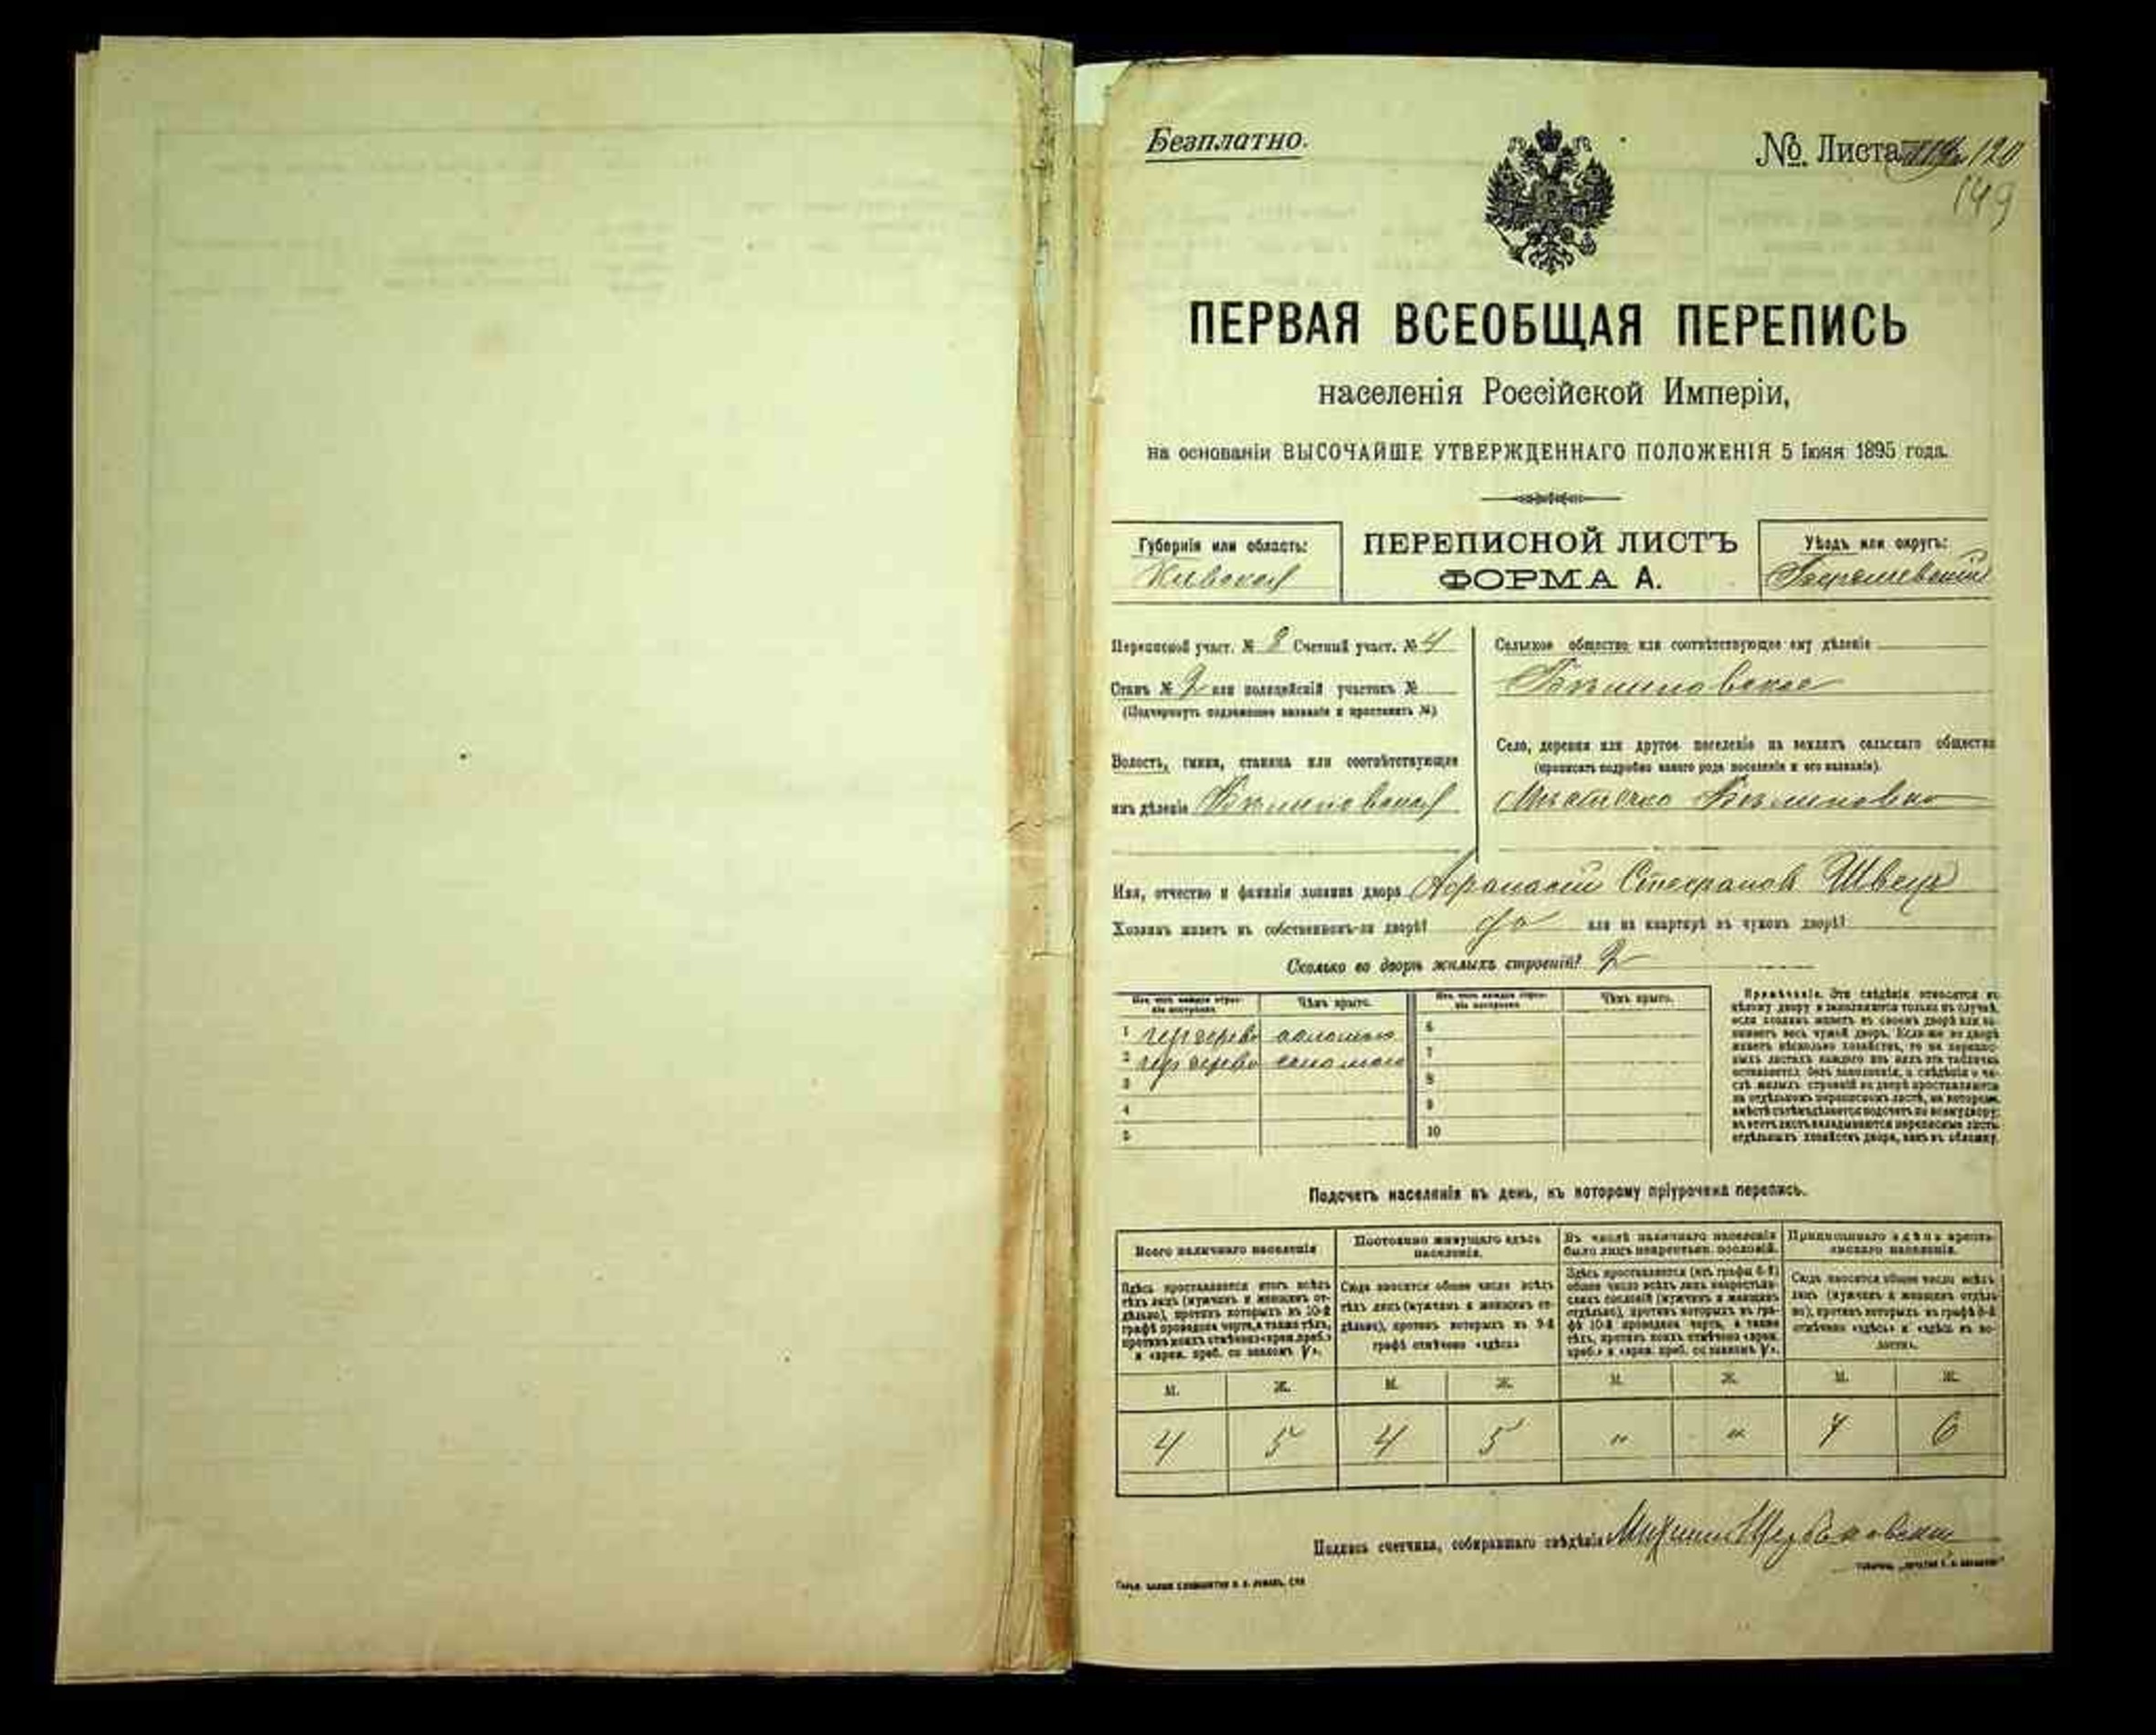 Безплатно.
№. Листа 120
149
ПЕРВАЯ ВСЕОБЩАЯ ПЕРЕПИСЬ
населенія Россійской Имперіи,
на основаніи ВЫСОЧАЙШЕ УТВЕРЖДЕННАГО ПОЛОЖЕНІЯ 5 Іюня 1895 года.
Губернія или область:
Кіевская
ПЕРЕПИСНОЙ ЛИСТЪ
ФОРМА А.
Уѣздъ или округъ:
Переписной участ. № 8 Счетный участ. № 4
Станъ № 2 или полицейскій участокъ №
(Подчеркнуть подлежащее названіе и проставить №)
Волость, гмина, станица или соотвѣтствующее
имъ дѣленіе
Сельское общество или соотвѣтствующее ему дѣленіе
Село, деревня или другое поселеніе на земляхъ сельскаго общества
(прописать подробно какого рода поселеніе и его названіе).
Мѣстечко
Имя, отчество и фамилія хозяина двора Афанасий Стефанов Швець
Хозяинъ живетъ въ собственномъ-ли дворѣ? да или на квартирѣ въ чужомъ дворѣ?
Сколько во дворѣ жилыхъ строеній? 2
Изъ чего каждое строеніе построено. Чѣмъ крыто. Изъ чего каждое строеніе построено. Чѣмъ крыто.
1 соломою 6
2 соломою 7
3 8
4 9
5 10
Примѣчаніе. Эти свѣдѣнія относятся къ
цѣлому двору и заполняются только въ случаѣ,
если хозяинъ живетъ въ своемъ дворѣ или за-
нимаетъ весь чужой дворъ. Если-же во дворѣ
живетъ нѣсколько хозяйствъ, то на перепис-
ныхъ листахъ каждаго изъ нихъ эта табличка
оставляется безъ заполненія, а свѣдѣнія о чи-
слѣ жилыхъ строеній во дворѣ проставляются
на отдѣльномъ переписномъ листѣ, на которомъ
вмѣстѣ съ тѣмъ дѣлается подсчетъ по всему двору;
въ этотъ листъ вкладываются переписные листы
отдѣльныхъ хозяйствъ двора, какъ въ обложку.
Подсчетъ населенія въ день, къ которому пріурочена перепись.
Всего наличнаго населенія
Здѣсь проставляется итогъ всѣхъ
тѣхъ лицъ (мужчинъ и женщинъ от-
дѣльно), противъ которыхъ въ 10-й
графѣ проведена черта, а также тѣхъ,
противъ коихъ отмѣчено «врем. преб.»
и «врем. преб. со знакомъ V».
Постоянно живущаго здѣсь
населенія.
Сюда вносится общее число всѣхъ
тѣхъ лицъ (мужчинъ и женщинъ от-
дѣльно), противъ которыхъ въ 9-й
графѣ отмѣчено «здѣсь»
Въ числѣ наличнаго населенія
было лицъ некрестьян. сословій.
Здѣсь проставляется (изъ графы 6-й)
общее число всѣхъ лицъ некрестьян-
скихъ сословій (мужчинъ и женщинъ
отдѣльно), противъ которыхъ въ гра-
фѣ 10-й проведена черта, а также
тѣхъ, противъ коихъ отмѣчено «врем.
преб.» и «врем. преб. со знакомъ V».
Приписаннаго здѣсь кресть-
янскаго населенія.
Сюда вносится общее число всѣхъ
лицъ (мужчинъ и женщинъ отдѣль-
но), противъ которыхъ въ графѣ 8-й
отмѣчено «здѣсь» и «здѣсь въ во-
лости».
М. Ж. М. Ж. М. Ж. М. Ж.
4 5 4 5 „ „ 4 6
Подпись счетчика, собиравшаго свѣдѣнія